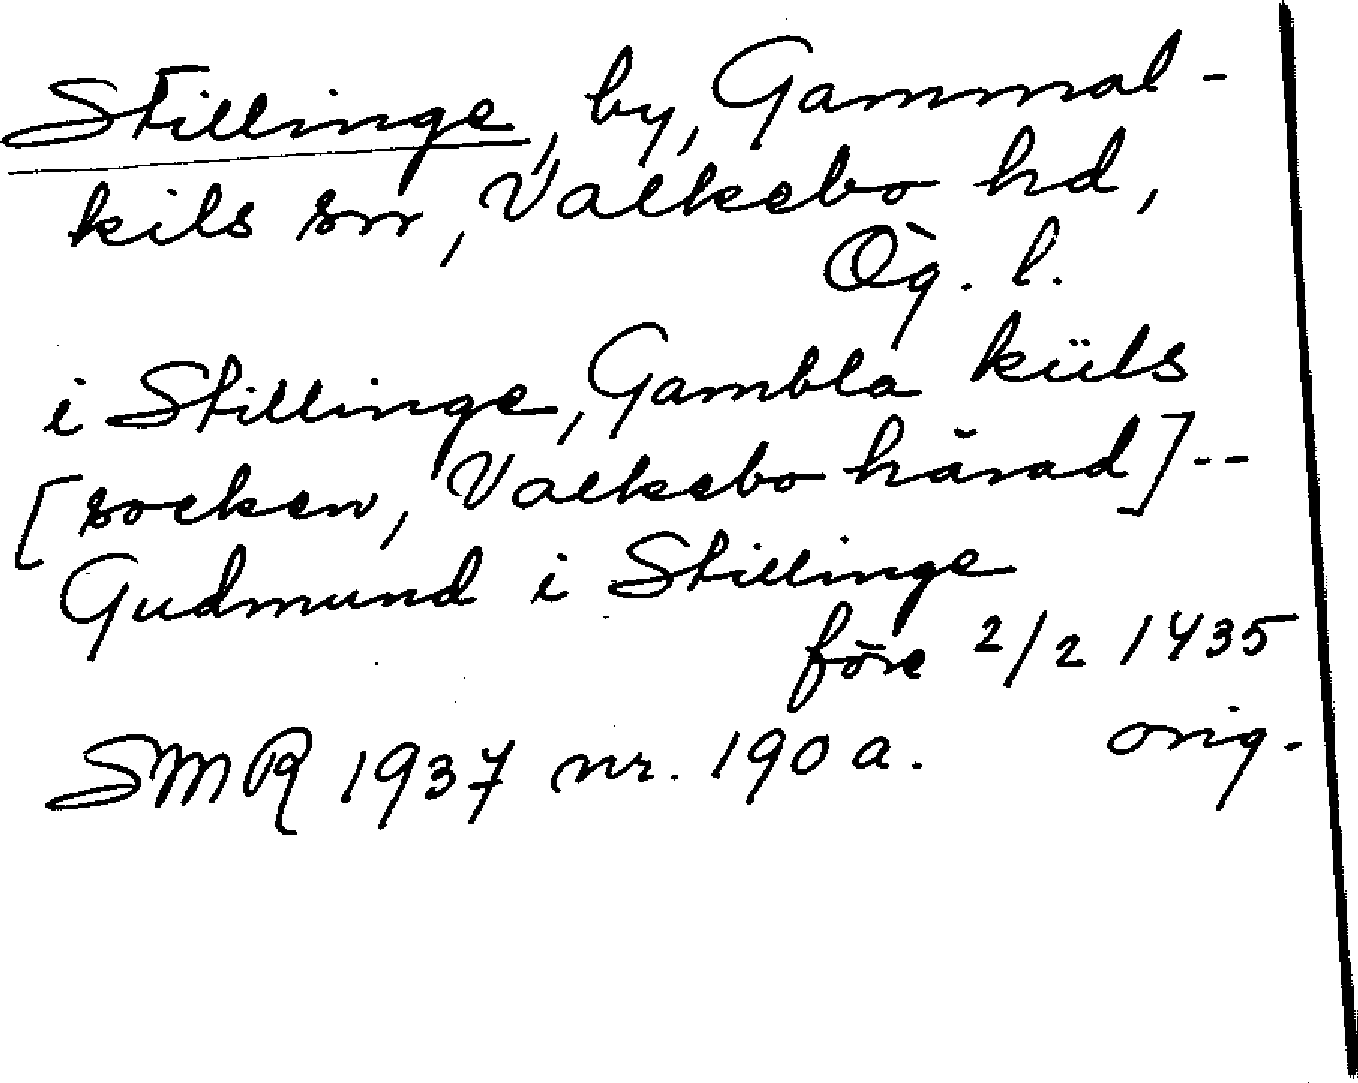 Stillinge, by, Gammal-
kils sn, Valkebo hd,
Ög. l.
i Stillinge, Gambla küls
[socken, Valkebo härad] --
Gudmund i Stillinge
före 2/2 1435
SMR 1937 nr. 190 a. orig.